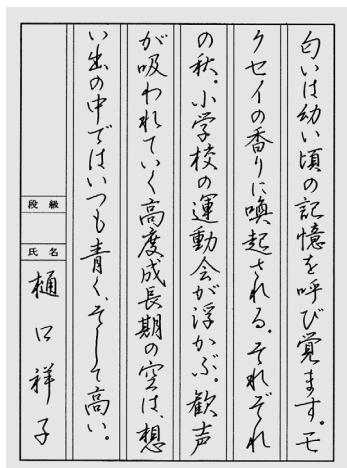 匂いは幼い頃の記憶を呼び覚ます。モ
クセイの香りに喚起される。それぞれ
の秋。小学校の運動会が浮かぶ。歓声
が吸われていく高度成長期の空は、想
い出の中ではいつも青く、そして高い。
段級
氏名
樋口祥子